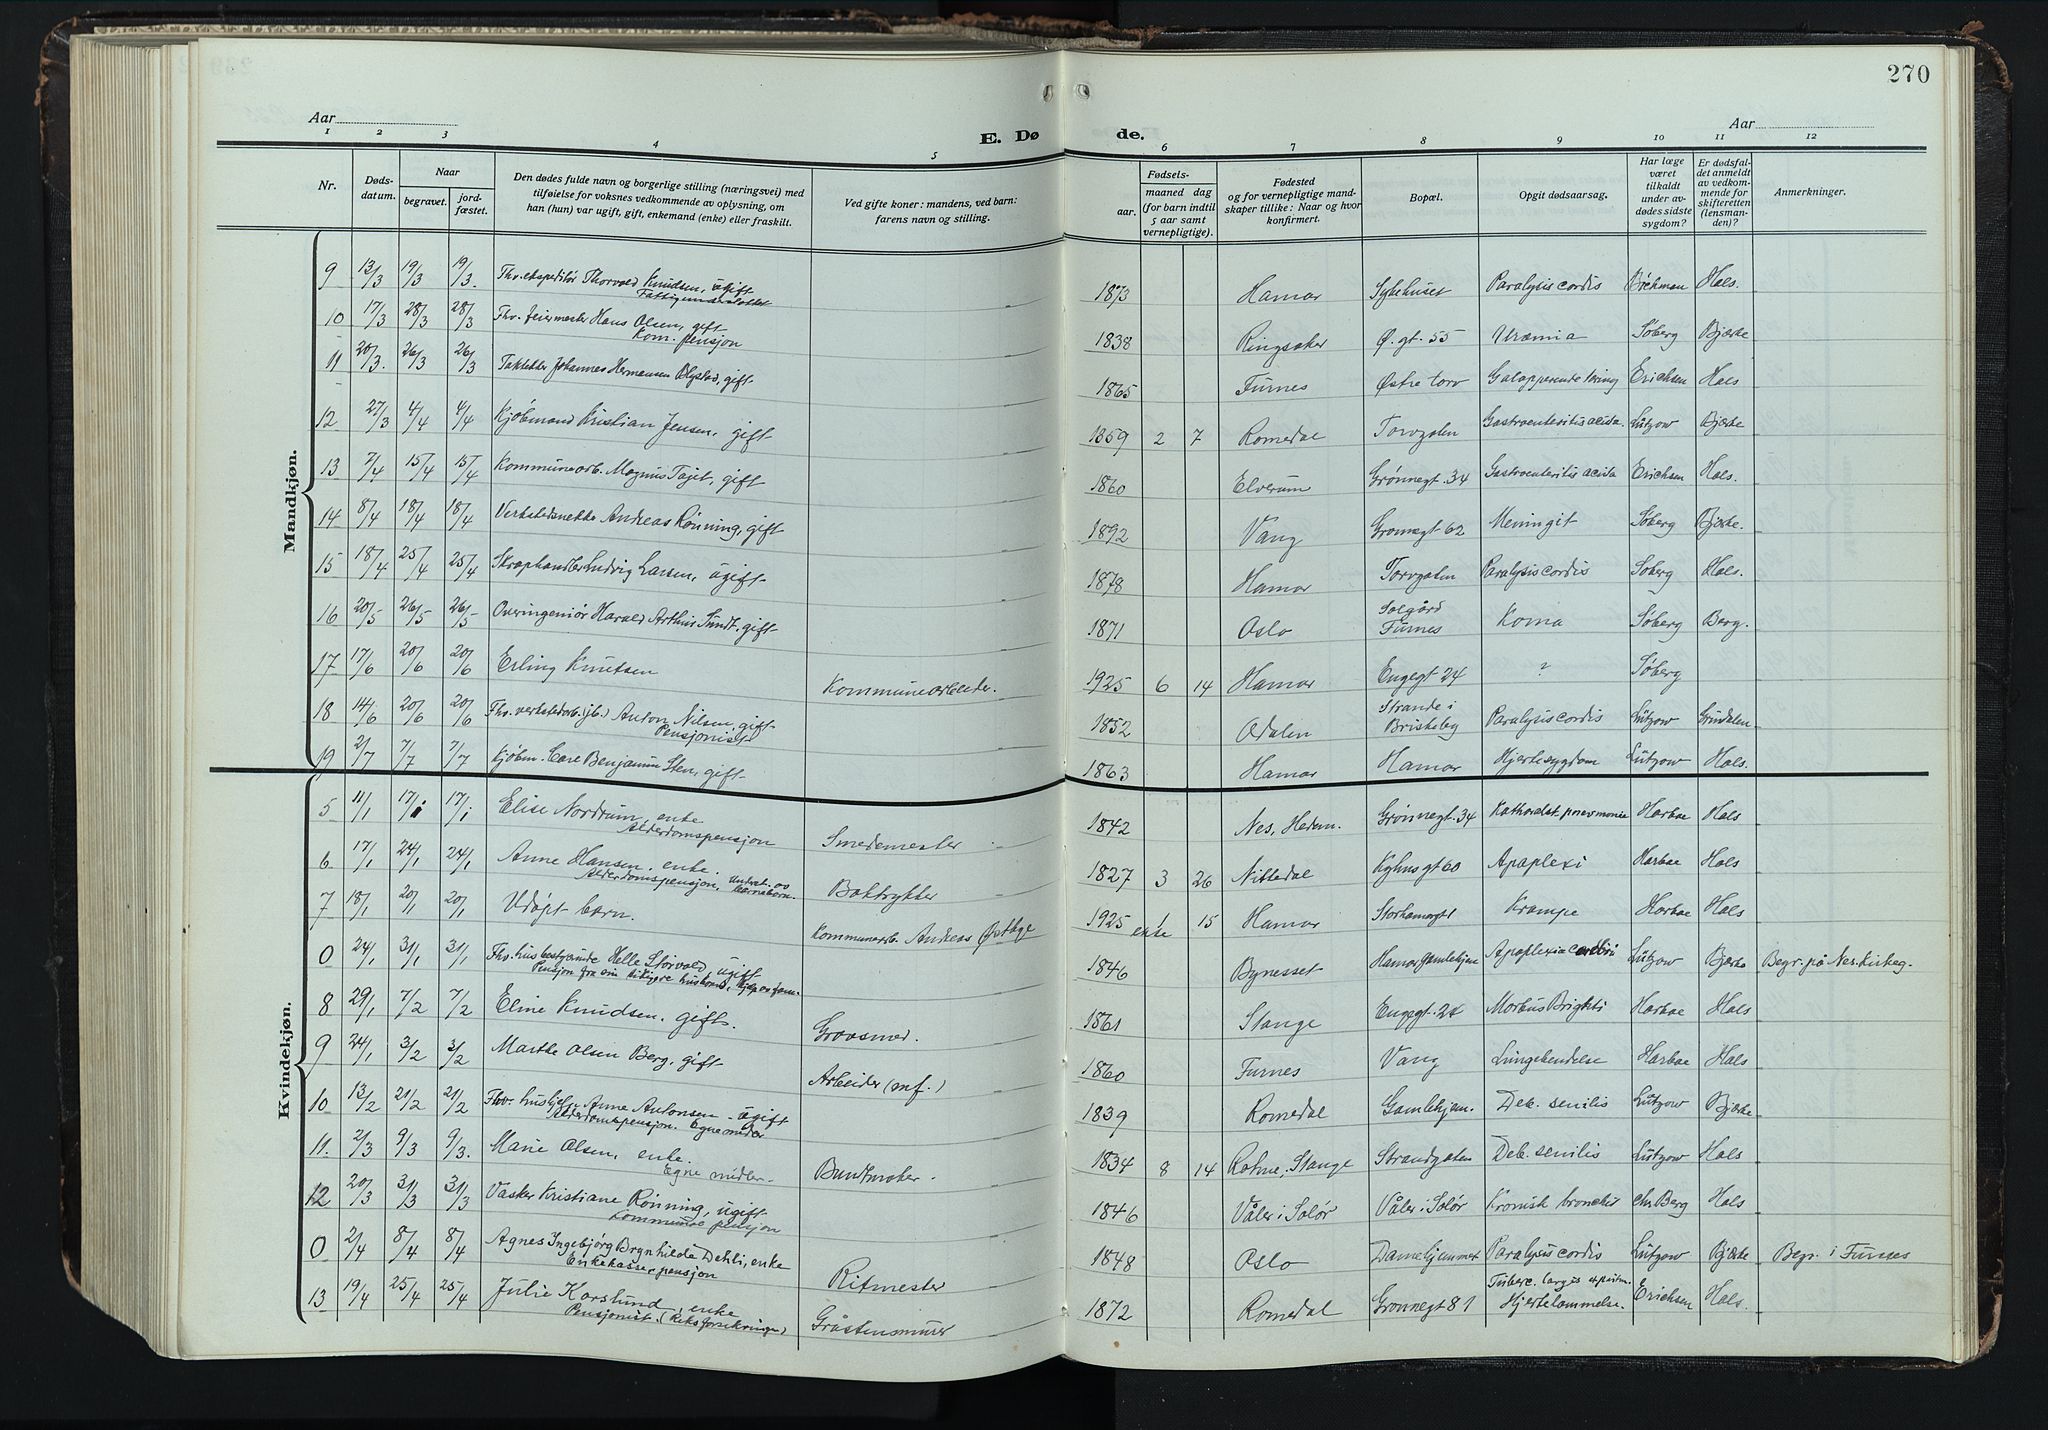 270
Aar
E. Dø de.
Aar
1 2 3 4 5 6 7 8 9 10 11 12
Nr.
Døds-
datum.
Naar
begravet.
jord-
fæstet.
Den dødes fulde navn og borgerlige stilling (næringsvei) med
tilføielse for voksnes vedkommende av oplysning, om
han (hun) var ugift, gift, enkemand (enke) eller fraskilt.
Ved gifte koner: mandens, ved barn:
farens navn og stilling.
Fødsels-
aar.
maaned dag
(for barn indtil
5 aar samt
vernepligtige).
Fødested
og for vernepligtige mand-
skaper tillike: Naar og hvor
konfirmert.
Bopæl.
Opgit dødsaarsag.
Har læge
været
tilkaldt
under av-
dødes sidste
sygdom?
Er dødsfal-
det anmeldt
av vedkom-
mende for
skifteretten
(lensman-
den)?
Anmerkninger.
Mandkjøn.
9 13/3 19/3 19/3. Fhv. ekspeditør Thorvald Knudsen, ugift 1873 Hamar Sykehuset Paralysis cordis Hals.
Fattigunderstøttet
10 17/3 28/3 28/3 Fhv. feiermester Hans Olsen, gift 1838 Ringsaker Ø. gt. 55 Uræmia Søberg Bjerke
Kom. pensjon
11 20/3. 26/3 26/3 Taktekker Johannes Hermansen Olstad, gift 1865 Furnes Østre torv Galopperende tæring Erichsen Hals
12 27/3 4/4 4/4 Kjøbmand Kristian Jensen, gift 1859 2 7 Romedal Torvgaten Gastroenteritis acuta Lützow Bjerke
13 7/4 15/4 15/4 Kommunearb. Magnus Tajet, gift 1860 Elverum Grønnegt. 34 Gastroenteritis acuta Erichsen Hals.
14 8/4 18/4 18/4 Andreas Rønning, gift 1892 Vang Grønnegt 62 Meningit Søberg Bjerke.
15 18/4 25/4 25/4 Skraphandler Ludvig Larsen, ugift 1878 Hamar Torvgaten Paralysis cordis Søberg Hals.
16 20/5 26/5 26/5 Overingeniør Harald Arthur Sundt, gift 1871 Oslo Solgård Furnes Koma Søberg Berg.
17 17/6 20/6 20/6 Erling Knutsen Kommunearbeider. 1925 6 14 Hamar Engegt 24 ? Søberg
18 14/6 20/6 20/6 Fhv. verkstedarb. (jb.) Anton Nilsen, gift 1852 Odalen Strande i Briskeby Paralysis cordis Lützow Grudalen
Pensjonist
19 2/7 7/7 7/7 Kjøbm. Care Benjamin Sten, gift 1863 Hamar Hamar Hjertesygdom Lützow Hals.
Kvindekjøn.
5 11/1 17/1 17/1 Elise Nordrum, enke Smedemester 1842 Nes, Hedm. Grønnegt. 34 Katharalsk pneumonie Harboe Hals
Alderdomspensjon
6 17/1 24/1 24/1 Anne Hansen. enke. Boktrykker 1827 3 26 Nittedal Kyhusgt 60 Apoplexi Harboe Hals
Alderdomspensjon, underst. av barnebarn.
7 18/1 20/1 20/1 Udøpt barn. Kommunarb. Andreas 1925 1 15 Hamar Storhamargt 1 Krampe Harboe Hals
0 24/1 31/1 31/1 Fhv. husbestyrinde Helle Størvold, ugift 1846 Bynesset Hamar Gamlehjem Apoplexia cerebri Lützow Bjerke Begr. på Nes kirkeg.
8 29/1 7/2 7/2 Eline Knudsen. gift. Grovsmed. 1861 Stange Engegt. 24 Morbus Brigkti Harboe Hals
9 24/1 3/2 3/2 Marthe Olsen Berg, gift Arbeider (mf.) 1860 Furnes Vang Lungebendelse Harboe Hals
10 13/2 21/2 21/2 Fhv. hushjelp Anne Antonsen - ugift 1839 Romedal Gamlehjem. Deb. senilis Lützow Bjerke
Alderdomspensjon. Egne midler
11. 2/3 9/3 9/3. Marie Olsen, enke. Buntmaker. 1834 8 14 Rohne, Stange Strandgaten Deb. senilis Lützow Hals
Egne midler.
12 20/3 31/3 31/3 Vasker Kristiane Rønning, ugift 1846 Våler i Solør Våler i Solør Kronisk bronchit Chr. Berg Hals
Kommunal pensjon
0 2/4 8/4 8/4 Agnes Ingebjørg Brynhilda Dehli, enke Ritmester 1848 Oslo Damehjemmet Paralysis cordis Lützow Bjerke Begr. i Furnes
Enkekassepensjon
13 19/4 25/4 25/4 Julie Korslund, enke Gråstensmurer 1872 Romedal Grønnegt 81 Hjertelammelse. Erichsen Hals.
Pensjonist. (Riksforsikringen)